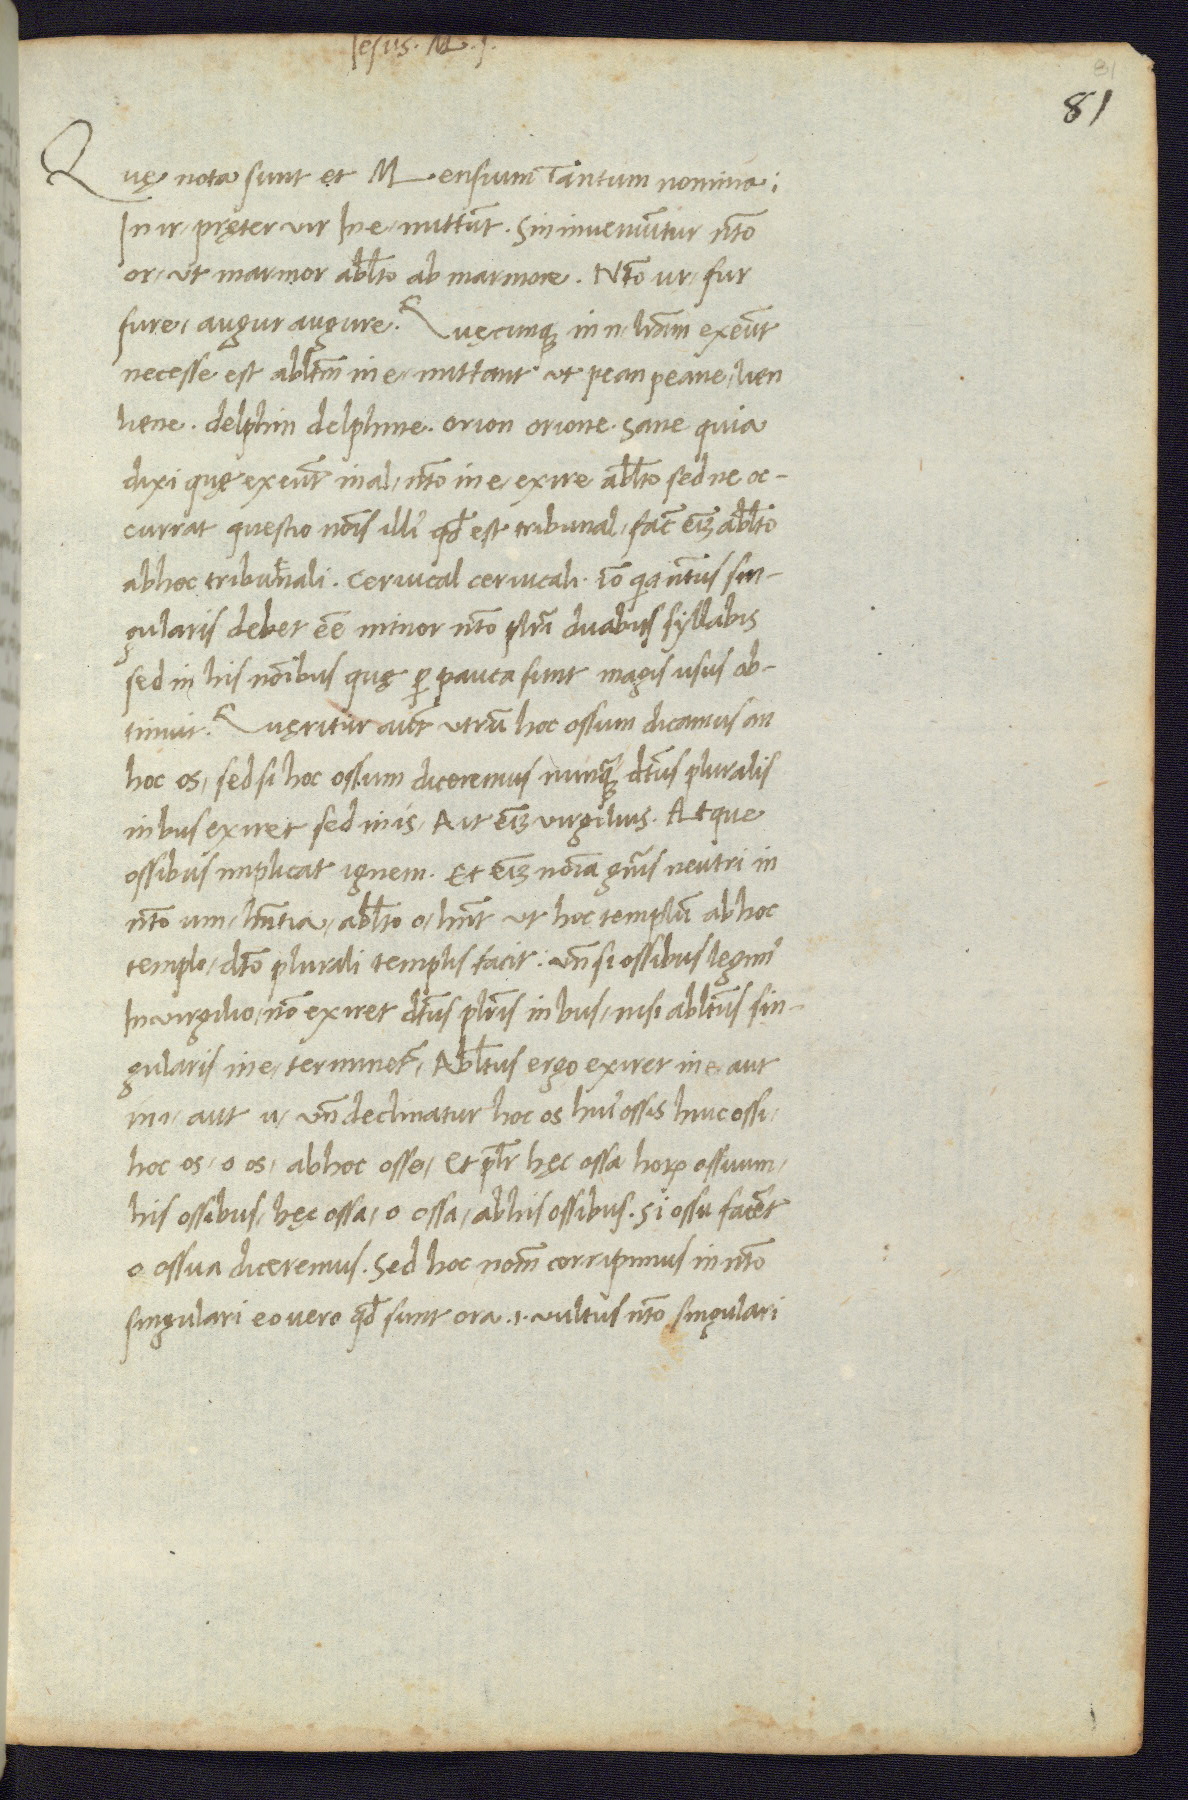 Iesus. M. J.
81
81
Quę nota sunt et Mensium Tantum nomina:
In ir, pręter vir In e, mittūt. Sin inueniūtur nt̄o
or, vt marmor abl̄to ab marmore. Nt̄o ur, fur
fure, augur augure. Quęcunqꝫ in n, lr̄am exeūt
necesse est abl̄tm̄ in e, mittant vt pean peane, lien
liene. delphin delphine. orion orione. Sane quia
dixi quę exeūt in al, nt̄o in e, exire abl̄to sed ne oc-
currat questio nōis illi' qd̄ est tribunal, fac̄ eīꝫ abl̄to
ab hoc tribunali. Ceruical ceruicali. Iō qa nt̄us sin-
gularis debet eē minor nt̄o plr̄i duabus syllabis
sed in his nōibus quę ꝑ pauca sunt magis usus ob-
tinuit. Quęritur aut̄ vtrū hoc ossum dicamus an
hoc os, sed si hoc ossum diceremus nunqꝫ dt̄us pluralis
in bus exiret sed in is, Ait eīꝫ virgilius. Atque
ossibus implicat ignem. Et eīꝫ noīa gn̄is neutri in
nt̄o um, hn̄tia, abl̄to o, hn̄t vt hoc templū ab hoc
templo, dt̄o plurali templis facit. vn̄ si ossibus legim'
In virgilio, nō exiret dt̄us plr̄is in bus, nisi abl̄tus sin-
gularis in e, terminet̄, Abl̄tus ergo exiret in e aut
in i, aut u, vn̄ declinatur hoc os hui' ossis huic ossi,
hoc os, o os, ab hoc osse, Et plr̄ hęc ossa hoꝝ ossuum,
his ossibus, hęc ossa, o ossa, ab his ossibus. Si ossu facēt
o ossua diceremus. Sed hoc nom̄ corripimus in nt̄o
singulari eo vero qd̄ sunt ora .i. vultus nt̄o singulari